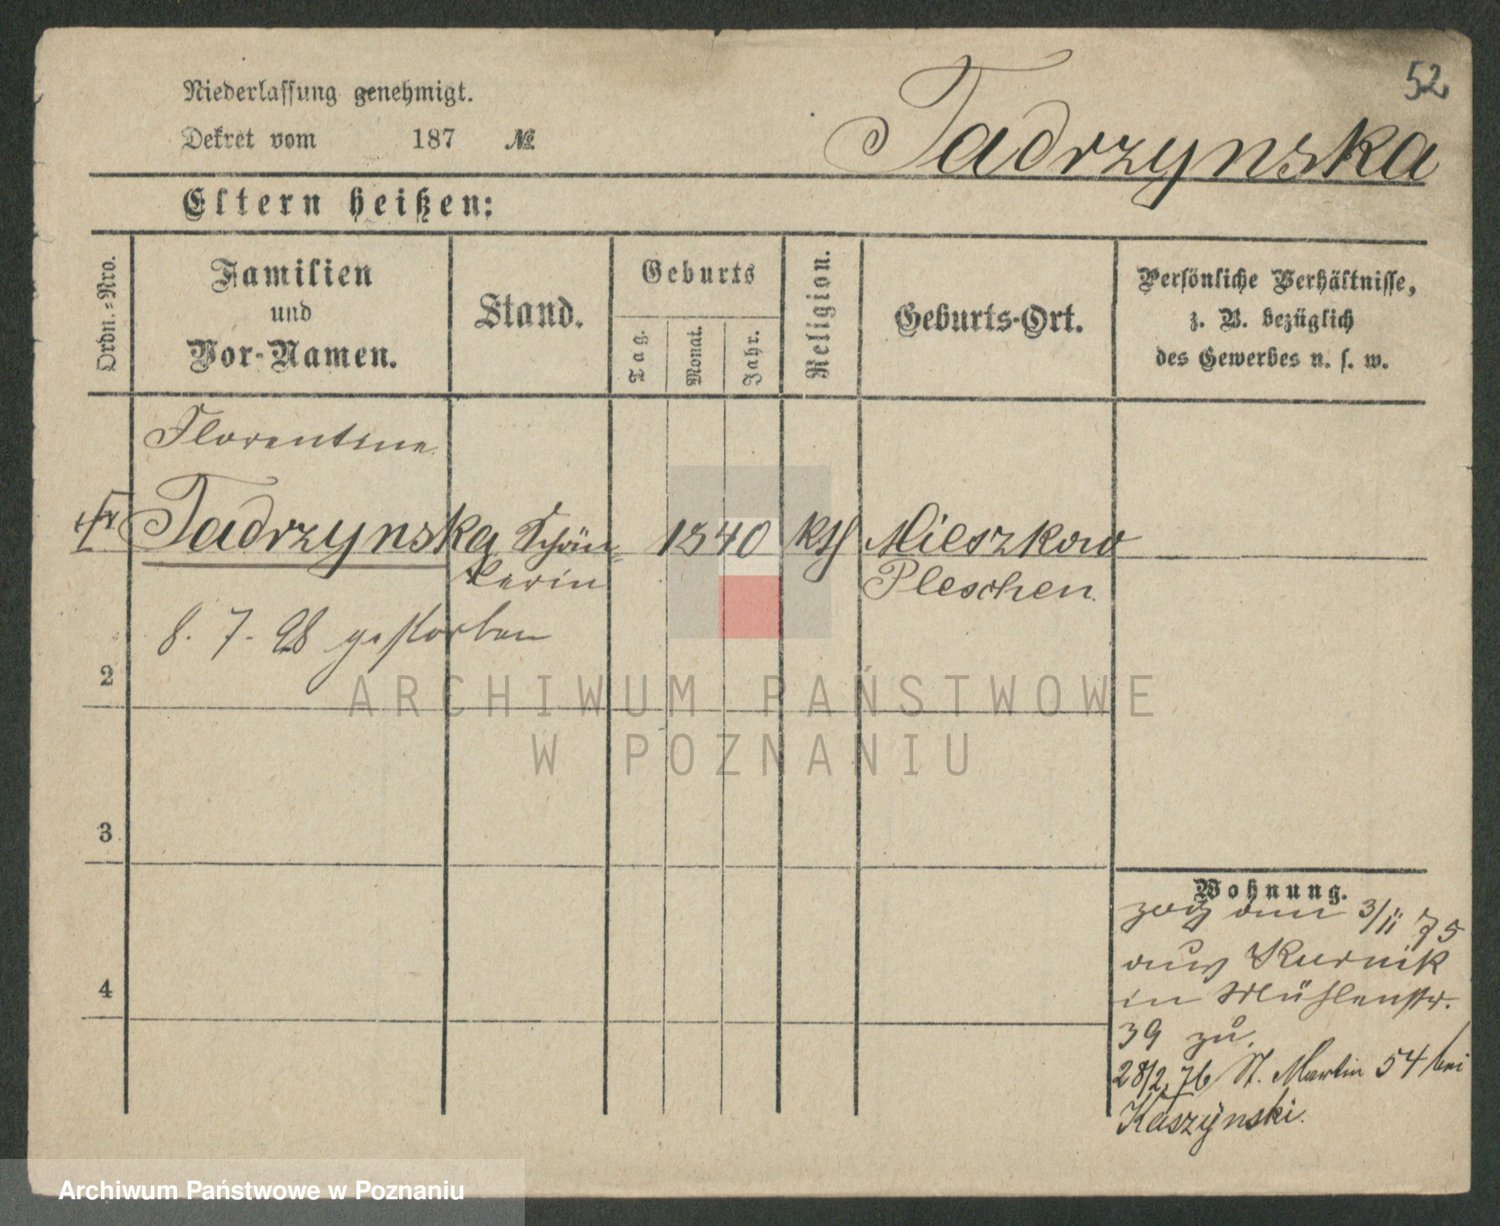 52
Niederlassung genehmigt.
Dekret vom 187 №
Tadrzynska
Eltern heißen:
Ordn.=Nro.
Familien
und
Vor-Namen.
Stand.
Geburts
Tag.
Monat.
Jahr.
Religion.
Geburts-Ort.
Persönliche Verhältnisse,
z. B. bezüglich
des Gewerbes u. s. w.
Florentine
Tadrzynska Schän- 1840 kth Mieszkow
kerin Pleschen
8. 7. 98 gestorben
2
3
4
Wohnung.
zog am 3/11 75
aus Kurnik
in Mühlenstr.
39 zu.
28/2 76 St. Martin 54 bei
Kaszÿnski.
ARCHIWUM PAŃSTWOWE
W POZNANIU
Archiwum Państwowe w Poznaniu